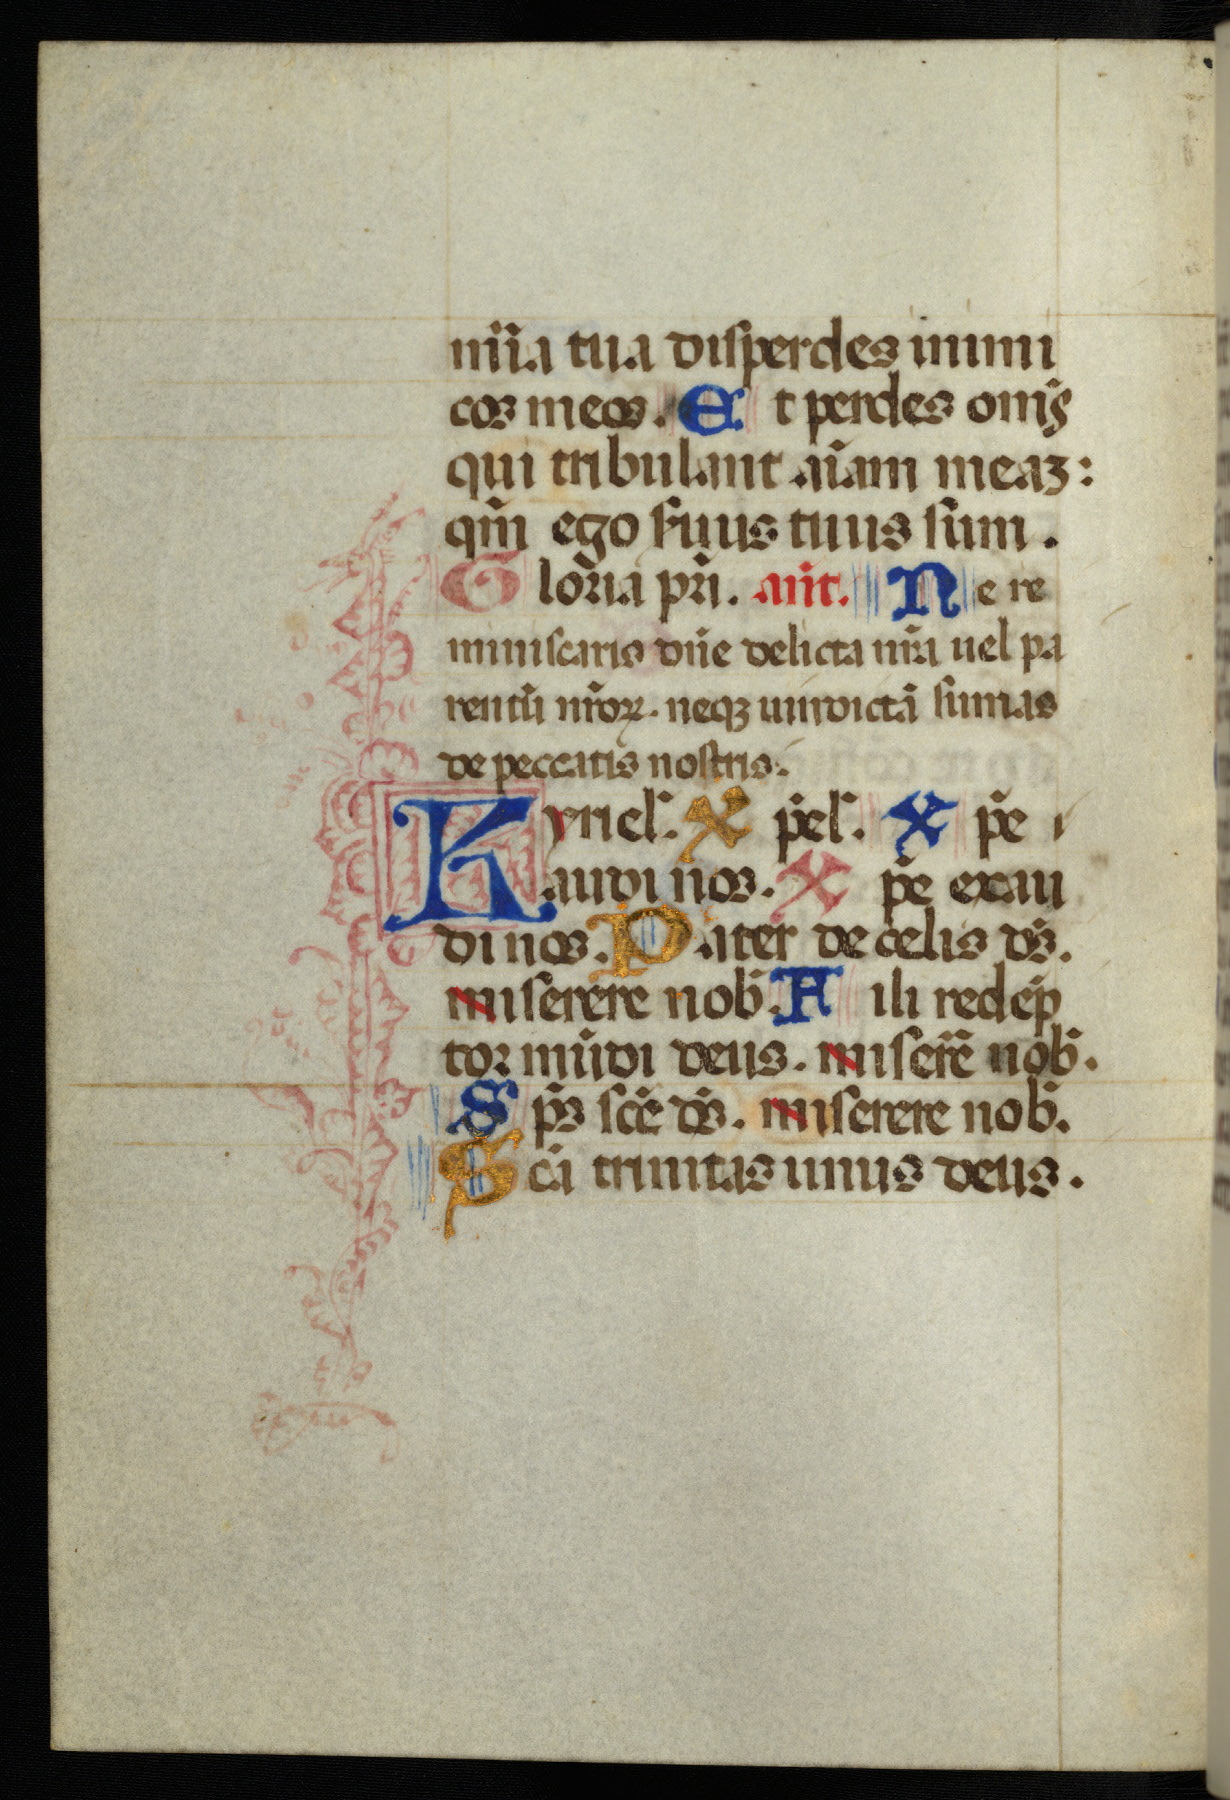 mĩa tua disperdes inimi
cos meos. Et perdes om̃s
qui tribulant aĩam meaʒ:
qm̃ ego s̃uus tuus sum.
Gloria pr̃i. añt. Ne re
miniscaris dñe delicta nr̃a uel pa
rentũ nr̃oꝝ. neqʒ uindictã sumas
de peccatis nostris.
Kyriel̃. X p̃el̃. X p̃e
audi nos. X p̃e exau
di nos. Pater de celis ds̃.
miserere nob̃. Fili redẽp
tor mũdi deus. miser̃e nob̃.
Sps̃ sc̃e ds̃. miserere nob̃.
Sc̃a trinitas unus deus.